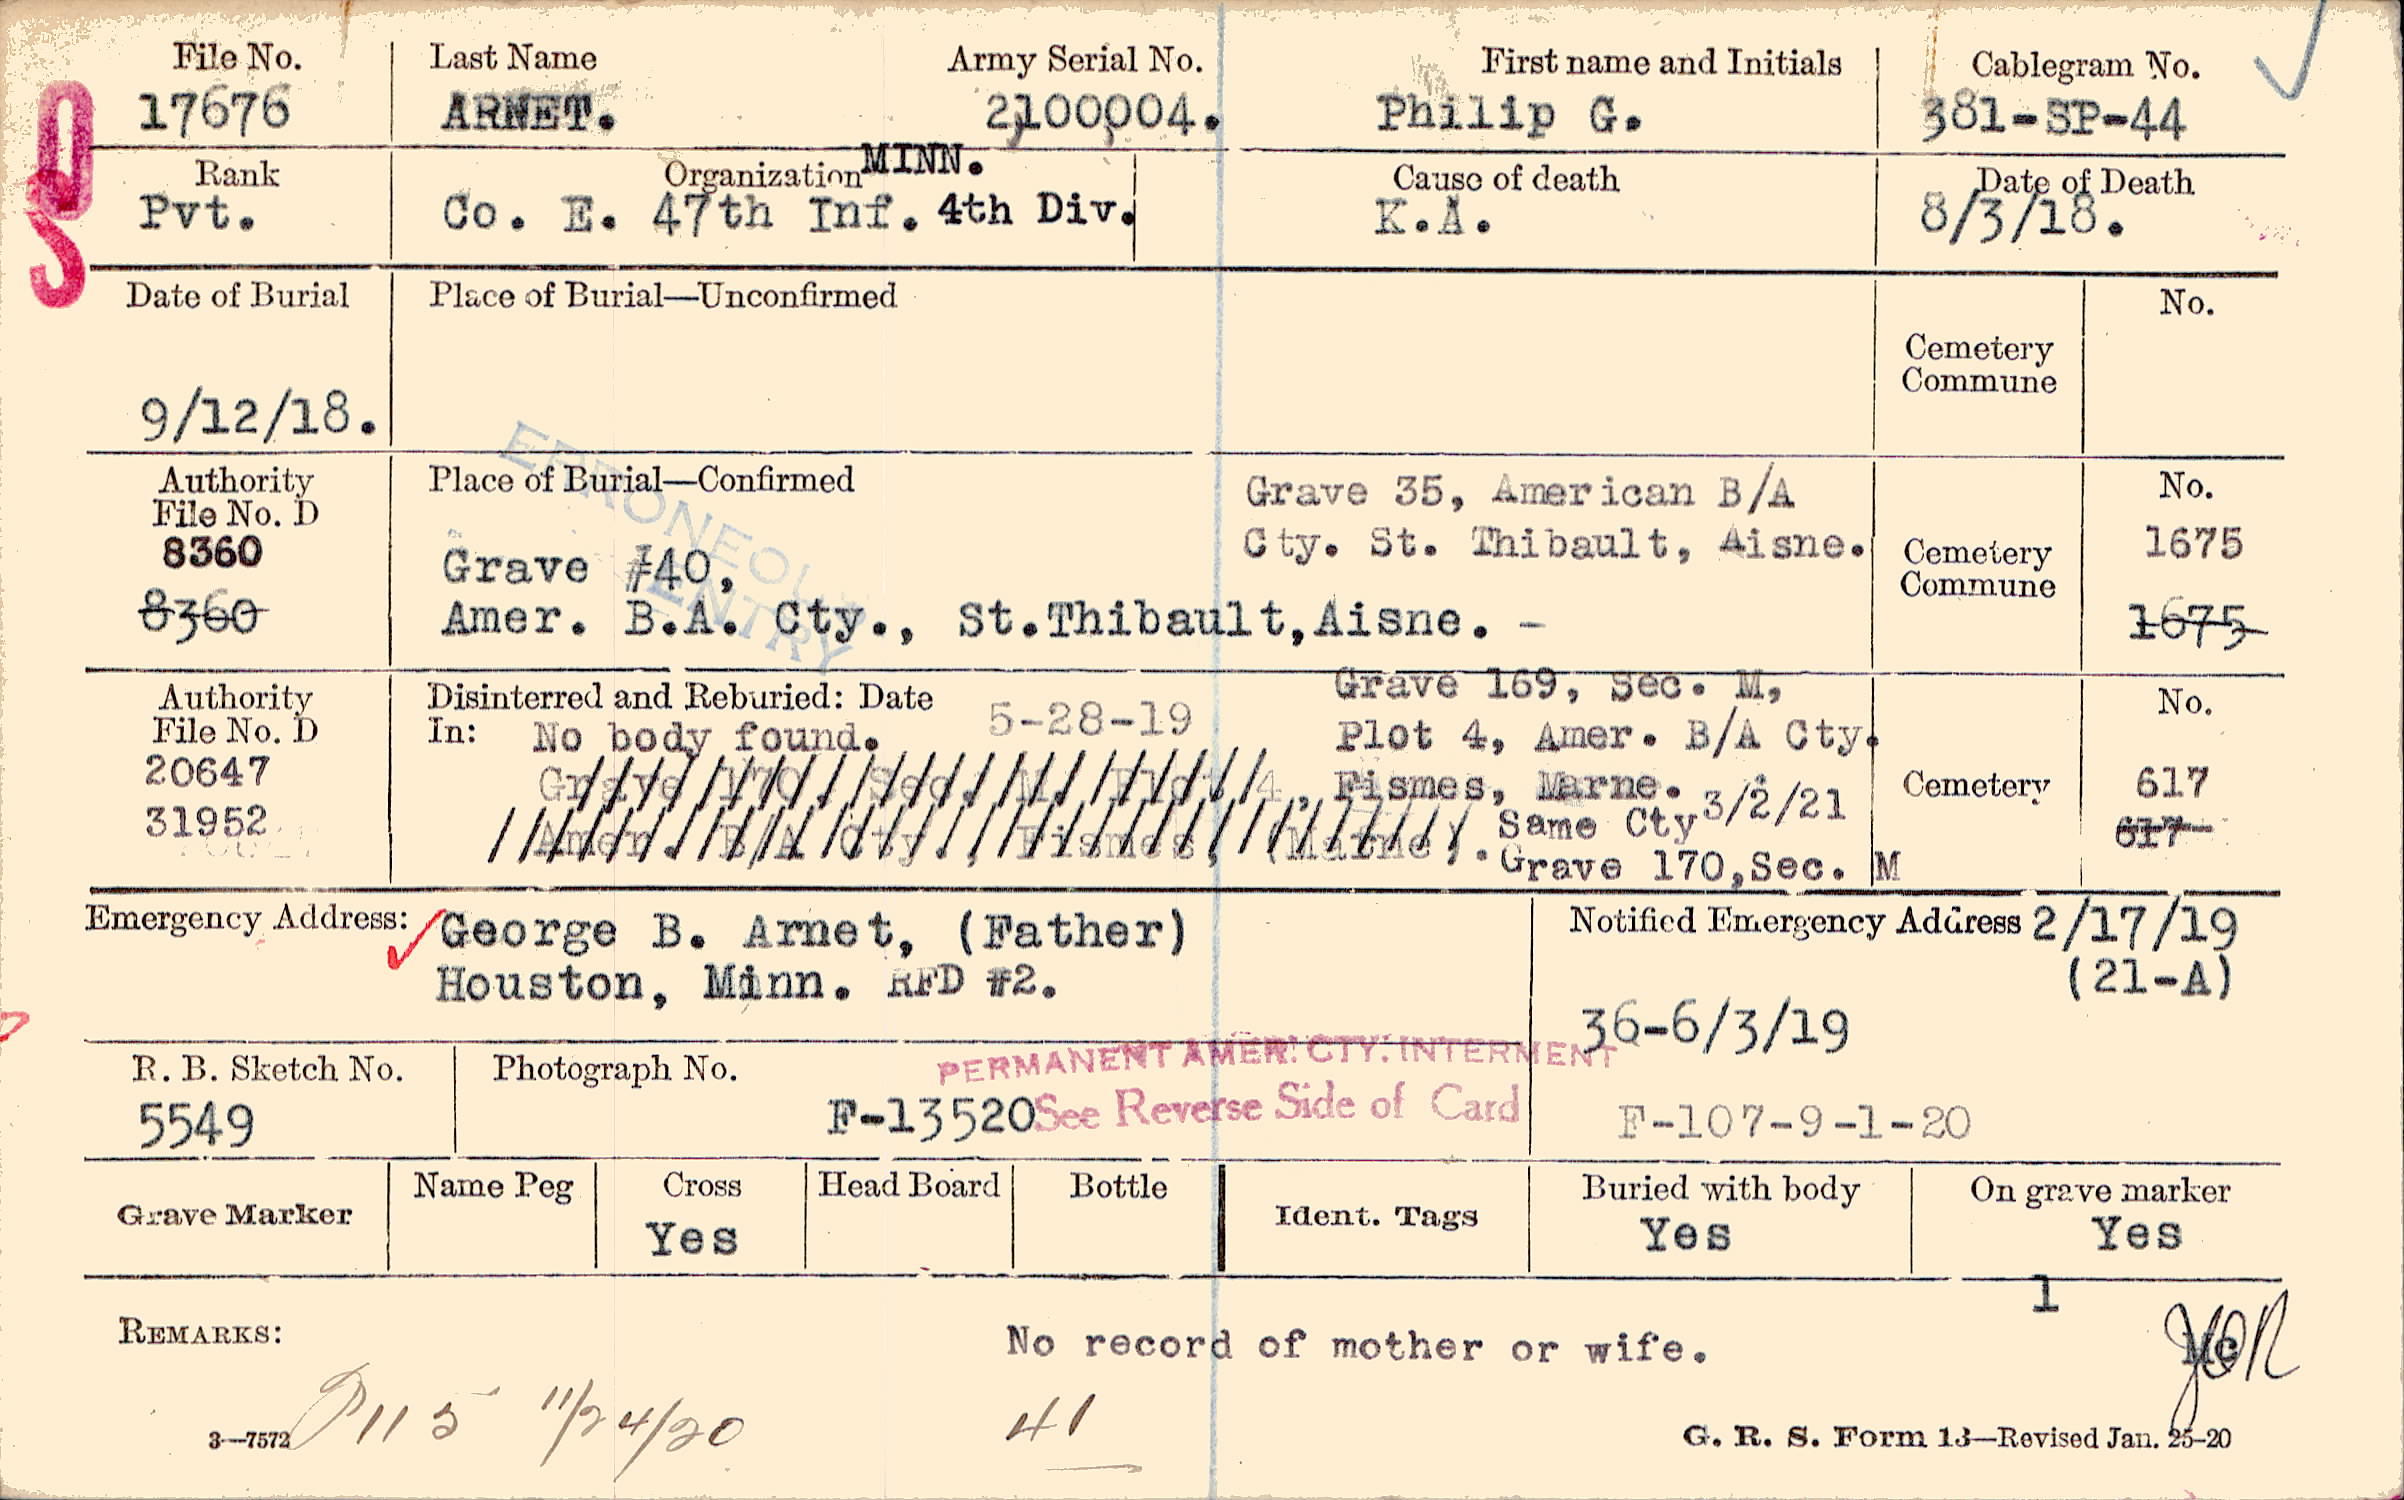 File No. Last Name Army Serial No. First name and Initials Cablegram No.
17676 ARNET. 2,100,004. Philip G. 381-SP-44
Rank Organization MINN. Cause of death Date of Death
Pvt. Co. E. 47th Inf. 4th Div. K.A. 8/3/18.
Date of Burial Place of Burial—Unconfirmed No.
Cemetery
Commune
9/12/18.
ERRONEOUS
ENTRY
Authority Place of Burial—Confirmed Grave 35, American B/A No.
File No. D Cty. St. Thibault, Aisne. 1675
8360 Grave #40, Cemetery
Commune
8360 Amer. B.A. Cty., St.Thibault,Aisne. - 1675
Authority Disinterred and Reburied: Date 5-28-19 Grave 169, Sec. M, No.
File No. D In: No body found. Plot 4, Amer. B/A Cty.
20647 Grave 170, Sec. M, Plot 4, Fismes, Marne. 3/2/21 Cemetery 617
31952 Amer. B/A Cty., Fismes, (Marne). Same Cty 617
Grave 170,Sec. M
Emergency Address: George B. Arnet, (Father) Notified Emergency Address 2/17/19
Houston, Minn. RFD #2. (21-A)
36-6/3/19
R. B. Sketch No. Photograph No. PERMANENT AMER. CTY. INTERMENT
5549 F-13520 See Reverse Side of Card F-107-9-1-20
Grave Marker Name Peg Cross Head Board Bottle Ident. Tags Buried with body On grave marker
Yes Yes Yes
1
REMARKS: No record of mother or wife.
11/24/20 41
3—7572 G. R. S. Form 13—Revised Jan. 25-20